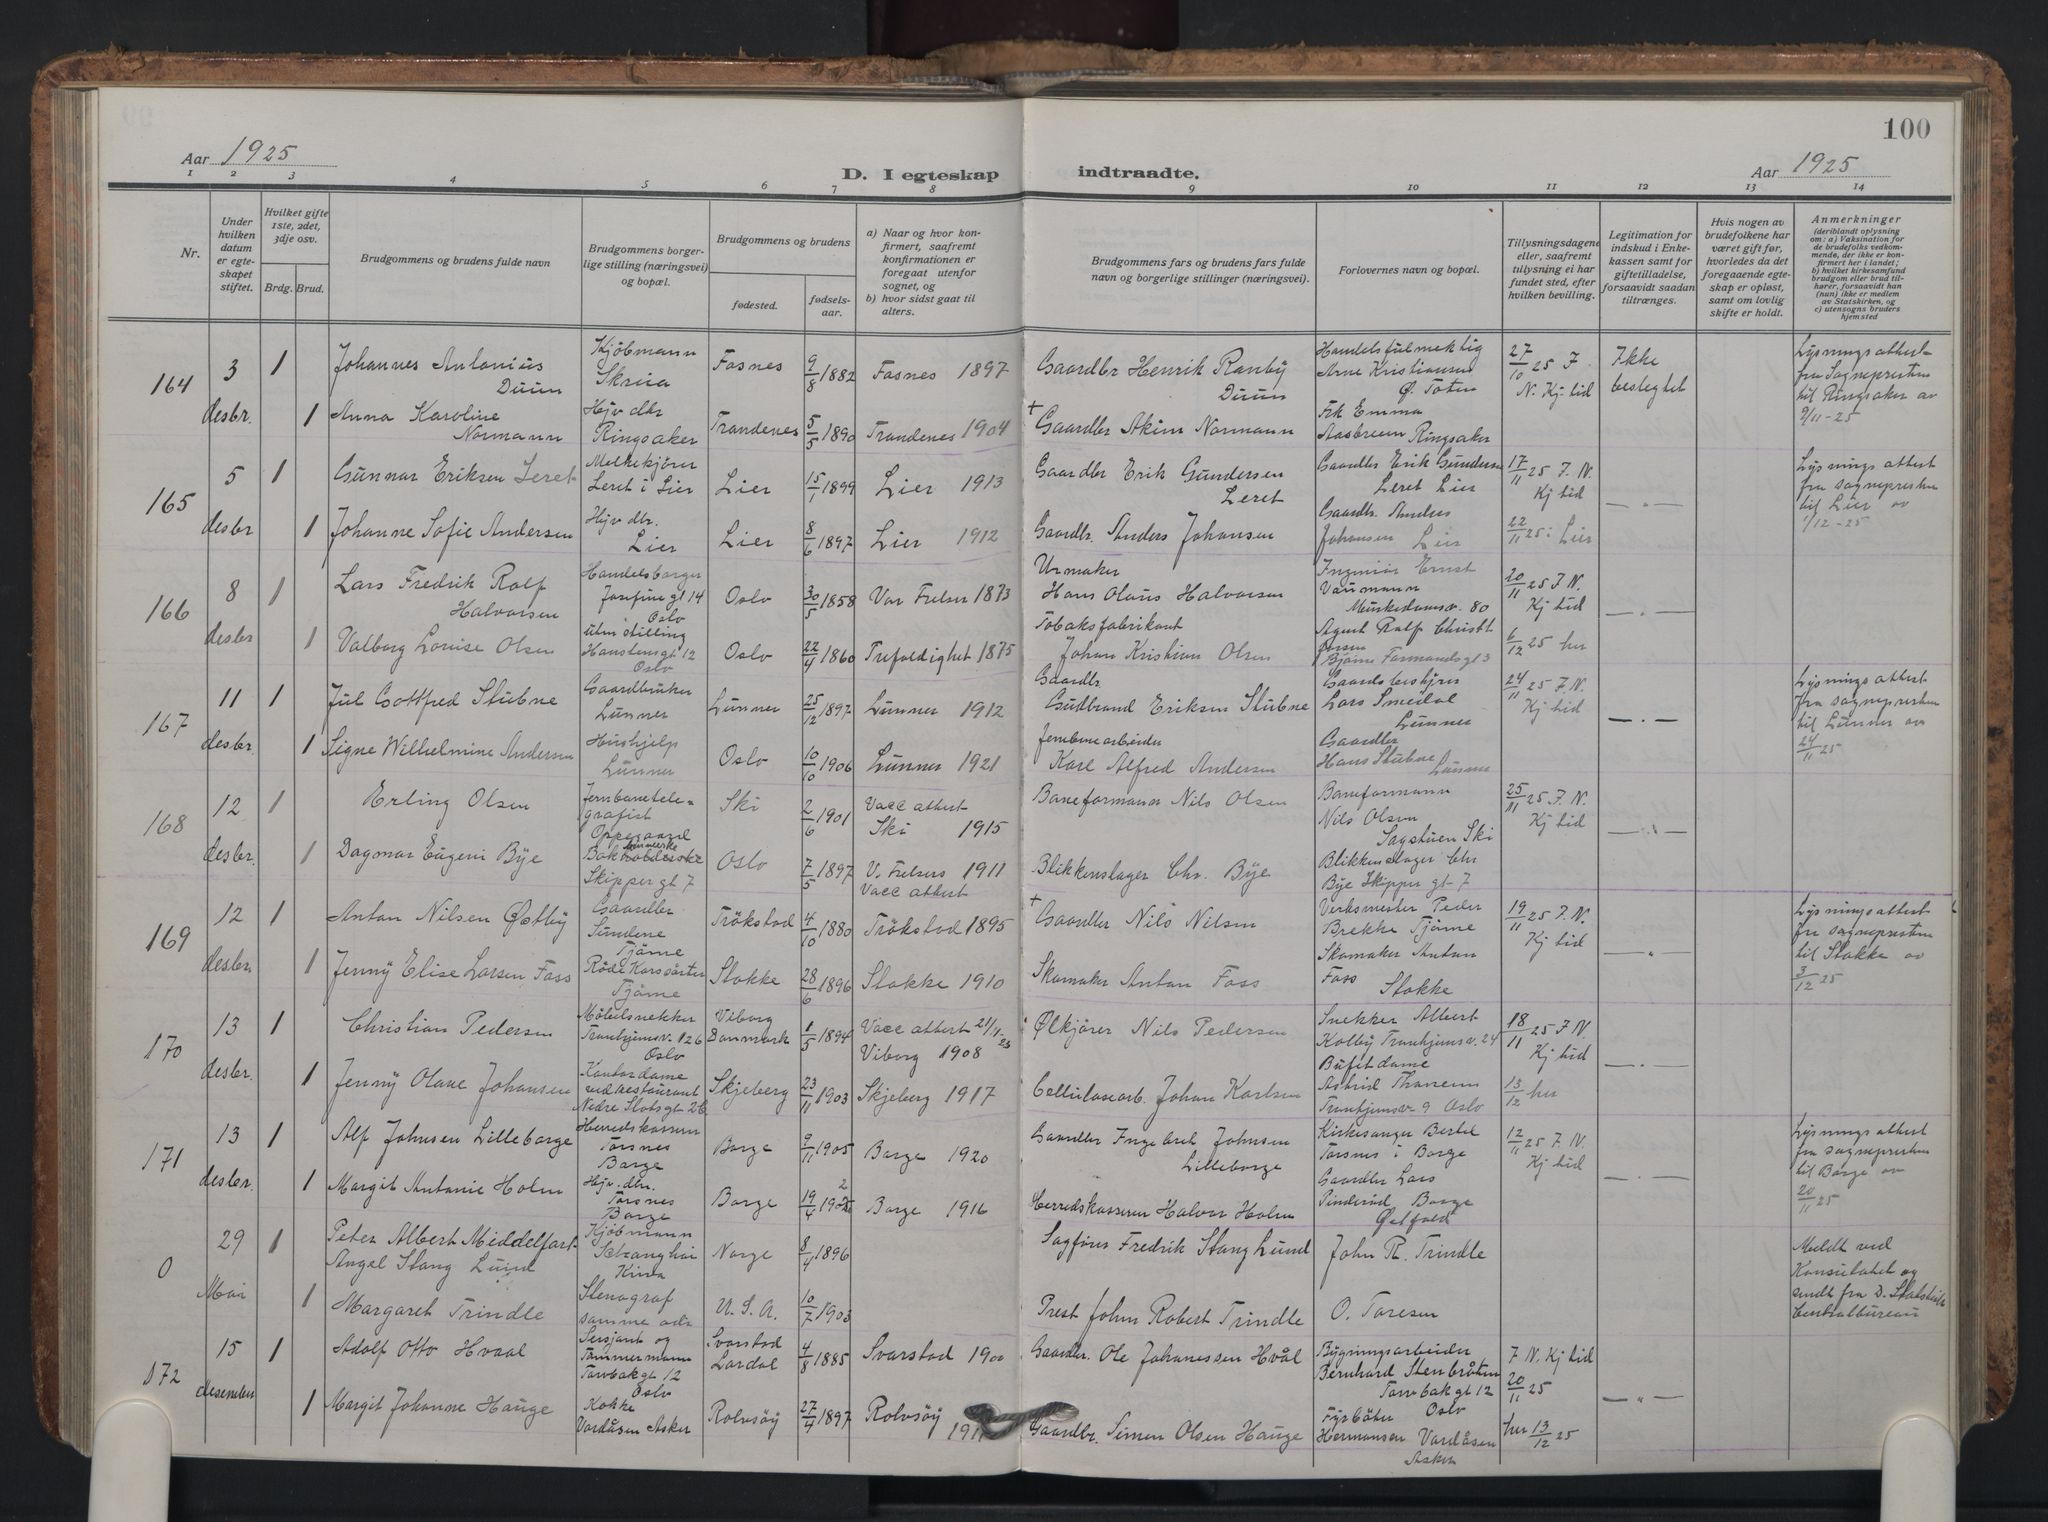 100
Aar 1925
D. I egteskap indtraadte.
Aar 1925
1 2 3 4 5 6 7 8 9 10 11 12 13 14
Nr.
Under hvilken datum er egteskapet stiftet.
Hvilket gifte 1ste, 2det, 3dje osv.
Brdg. Brud.
Brudgommens og brudens fulde navn
Brudgommens borgerlige stilling (næringsvei) og bopæl.
Brudgommens og brudens
fødested.
fødselsaar.
a) Naar og hvor konfirmert, saafremt konfirmationen er foregaat utenfor sognet, og
b) hvor sidst gaat til alters.
Brudgommens fars og brudens fars fulde navn og borgerlige stillinger (næringsvei).
Forlovernes navn og bopæl.
Tillysningsdagene eller, saafremt tillysning ei har fundet sted, efter hvilken bevilling.
Legitimation for indskud i Enkekassen samt for giftetilladelse, forsaavidt saadan tiltrænges.
Hvis nogen av brudefolkene har været gift før, hvorledes da det foregaaende egteskap er opløst, samt om lovlig skifte er holdt.
Anmerkninger
(deriblandt oplysning om: a) Vaksination for de brudefolks vedkommende, der ikke er konfirmert her i landet;
b) hvilket kirkesamfund brudgom eller brud tilhører, forsaavidt han (hun) ikke er medlem av Statskirken, og
c) utensogns bruders hjemsted
164 3 desbr. 1 Johannes Antonius Duun Kjöbmann Skreia Fosnes 9/8 1882 Fosnes 1897 Gaardbr Henrik Ranby Duun Handelsfulmektig Arne Kristiansen Ø. Toten 27/10 25 F. N. Kj. tid Ikke beslegtet Lysningsattest fra Sognepresten til Ringsaker av 9/11-25
1 Anna Karoline Normann Hjv dtr Ringsaker Trondenes 5/5 1890 Trondenes 1904 + Gaardbr Akim Normann Frk Emma Aasbreen Ringsaker
165 5 desbr 1 Gunnar Eriksen Leret Melkekjörer Leret i Lier Lier 15/1 1899 Lier 1913 Gaardbr Erik Gundersen Leret Gaardbr Erik Gundersen Leret Lier 17/11 25 F. N. Kj tid — „ — Lysnings attest fra sognepresten til Lier av 1/12-25
1 Johanne Sofie Andersen Hjv dtr. Lier Lier 8/6 1897 Lier 1912 Gaardbr. Anders Johansen Gaardbr. Anders Johansen Lier 22/11 25 i Lier
166 8 desbr 1 Lars Fredrik Rolf Halvorsen Handelsborger Josefine gt 14 Oslo Oslo 30/5 1858 Vor Frelser 1873 Urmaker Hans Olaus Halvorsen Ingeniör Ernst Vaumann Munkedamsv. 80 20/11 25 F. N. Kj tid — „ —
1 Valborg Lovise Olsen uten stilling Hanstensgt 12 Oslo Oslo 22/4 1860 Trefoldighet 1875 Tobaksfabrikant Johan Kristian Olsen Agent Rolf Christ Bjarne Farmandsgt 3 6/12 25 her
167 11 desbr. 1 Jul Gottfred Stubne Gaardbruker Lunner Lunner 25/12 1897 Lunner 1912 Gaardbr. Gudbrand Eriksen Stubne Gaardsbestyrer Lars Smedal Lunner 24/11 25 F. N. Kj tid — „ — Lysnings attest fra sognepresten til Lunner av 24/11 25
1 Signe Wilhelmine Andersen Hushjelp Lunner Oslo 10/10 1906 Lunner 1921 Jernbanearbeider Karl Alfred Andersen Gaardbr Hans Stubne Lunner
168 12 desbr. 1 Erling Olsen Jernbanetelegrafist Oppegaard Ski 2/6 1901 Vacc attest Ski 1915 Baneformann Nils Olsen Baneformann Nils Olsen Sagstuen Ski 25/11 25 F. N. Kj tid — „ —
1 Dagmar Eugeni Bÿe Skipper gt 7 Oslo 7/5 1897 V. Frelsers 1911 Vacc attest Blikkenslager Chr. Bÿe Blikkenslager Chr Bÿe Skipper gt 7
169 12 desbr. 1 Anton Nilsen Østbÿ Gaardbr Sundene Tjöme Trökstad 4/10 1880 Trökstad 1895 + Gaardbr Nils Nilsen Verksmester Peder Brekke Tjöme 19/11 25 F. N. Kj tid — „ — Lysnings attest fra sognepresten til Stokke av 3/12 25
1 Jennÿ Elise Larsen Foss Röde Korsgårter Tjöme Stokke 28/6 1896 Stokke 1910 Skomaker Anton Foss Skomaker Anton Foss Stokke
170 13 desbr. 1 Christian Pedersen Möbelsnekker Trondhjemsv. 126 Oslo Viborg Danmark 1/5 1894 Vacc attest 21/1-23 Viborg 1908 Ølkjörer Nils Pedersen Snekker Albert Kolbÿ Trondhjemsv. 24 18/11 25 F N. Kj tid — „ —
1 Jennÿ Olave Johansen Kontordame ved Restaurant Nedre Slotsgt 26 Skjeberg 23/11 1903 Skjeberg 1917 Cellulosearb. Johan Karlsen Bufetdame Astrid Thanem Trondhjemsv 9 Oslo 13/12 her
171 13 desbr. 1 Alf Johnsen Lilleborge Herredskasserer Torsnes Borge Borge 9/11 1905 Borge 1920 Gaardbr Ingebret Johnsen Lilleborge Kirkesanger Bertel Torsnes i Borge 12/11 25 F. N. Kj tid — „ — Lysnings attest fra sognepresten til Borge av 20/11 25
1 Margit Antonie Holm Hjv. dtr. Torsnes Borge Borge 19/4 1902 Borge 1916 Herredskasserer Halvor Holm Gaardbr Lars Pinderud Borge Østfold
0 29 Mai 1 Peter Albert Middelfart Angel Stang Lund Kjöbmann Schanghai Kina Norge 8/4 1896 Sagförer Fredrik Stang Lund John R. Trindle Meldt ved Konsulatet og sendt fra D. Statistiske Centralbureau
1 Margaret Trindle Stenograf samme adr. U. S. A. 10/7 1903 Prest John Robert Trindle O. Toresen
172 15 desember 1 Adolf Otto Hvaal Sersjant og Tömmermann Torvbakgt 12 Oslo Svarstad Lardal 4/8 1885 Svarstad 1900 Gaardbr. Ole Johanessen Hvål Bygningsarbeider Bernhard Stenbråten Torvbakgt 12 Oslo F. N. Kj tid 20/11 25 — „ —
1 Margit Johanne Hauge Kokke Vardåsen Asker Rolvsöÿ 27/7 1897 Rolvsöÿ 191 Gaardbr. Simen Olsen Hauge Fyrböter Hermansen Vardåsen Asker her 13/12 25